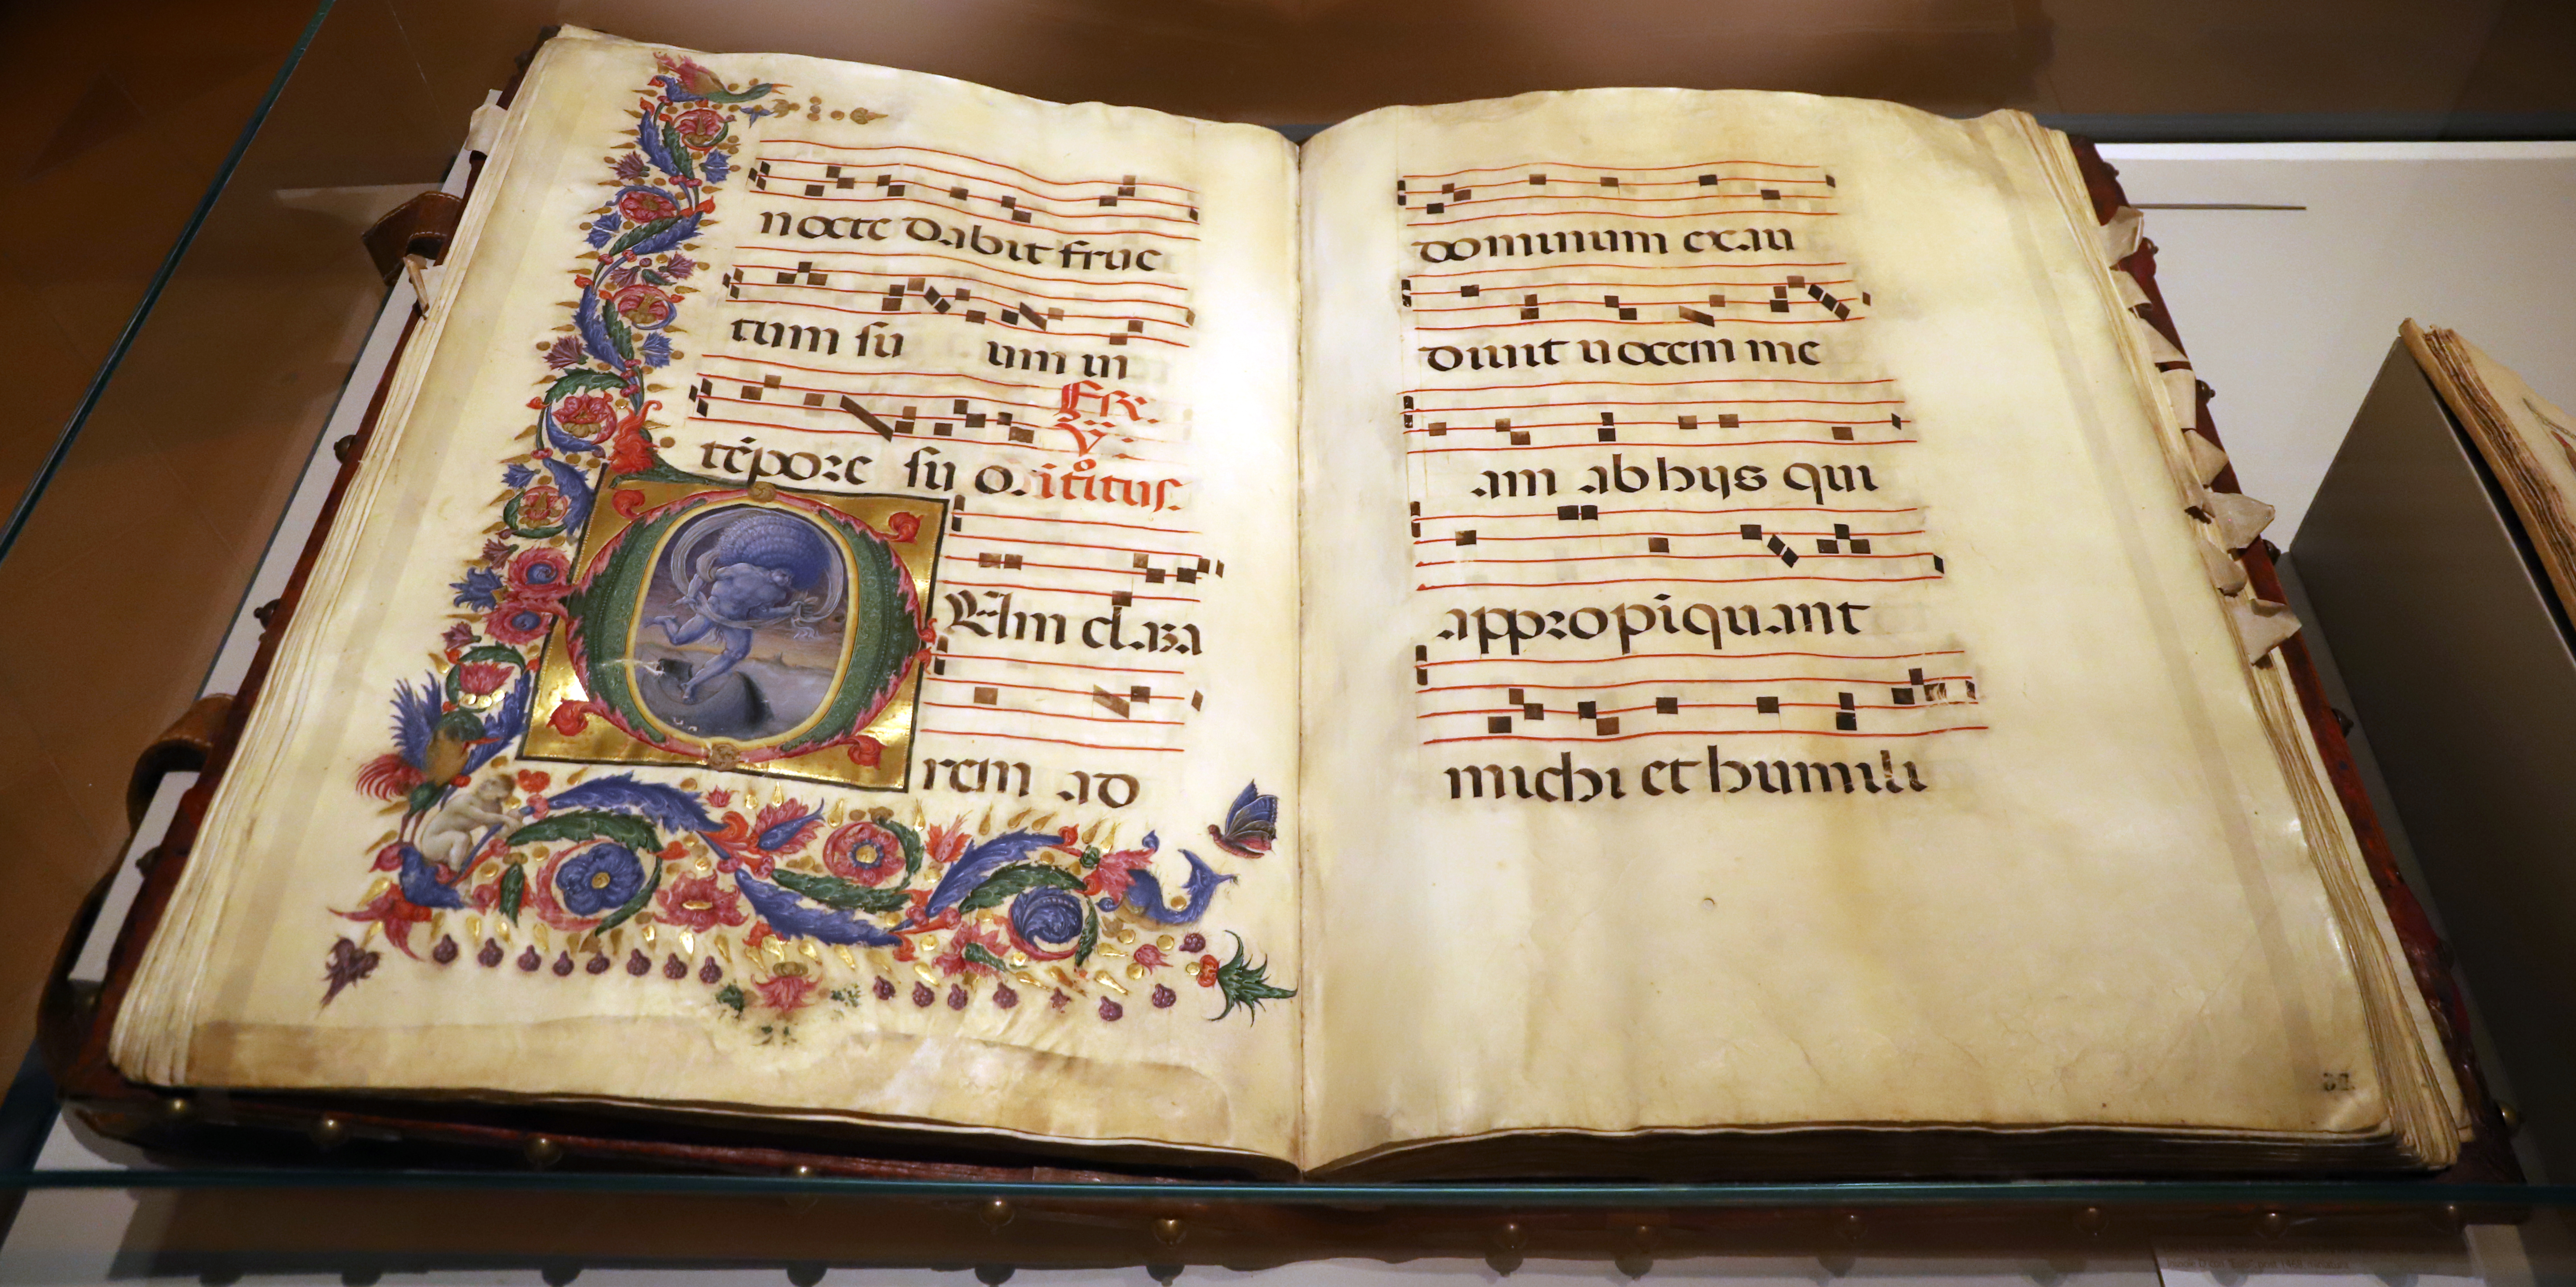 nocte dabit fruc
tum su um in
Fr̃.
V.
tēpore su o. ītºitus.
Vm clama
rem ad
dominum exau
diuit uocem me
am ab hijs qui
appropīquant
michi et humili